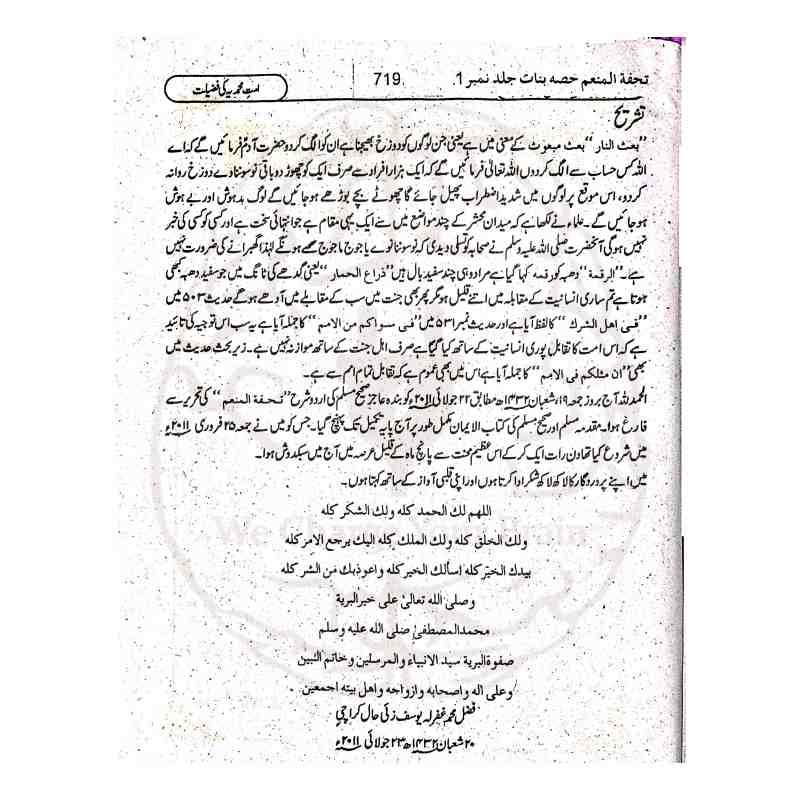 تحفة المنعم حصه بنات جلد نمبر 1.
719.
امتِ محمدیہ کی فضیلت
تشریح
"بعث النار" بعث مبعوث کے معنی میں ہے یعنی جن لوگوں کو دوزخ بھیجنا ہے ان کو الگ کر دو حضرت آدمؑ فرمائیں گے کہ اے
اللہ کس حساب سے الگ کردوں اللہ تعالیٰ فرمائیں گے کہ ایک ہزار افراد سے صرف ایک کو چھوڑ دو باقی نو سو ننانوے دوزخ روانہ
کردو، اس موقع پر لوگوں میں شدید اضطراب پھیل جائے گا چھوٹے بچے بوڑھے ہوجائیں گے لوگ مدہوش اور بے ہوش
ہوجائیں گے۔ علماء نے لکھا ہے کہ میدان محشر کے چند مواضع میں سے ایک یہی مقام ہے جو انتہائی سخت ہے اور کسی کو کسی کی خبر
نہیں ہوگی آنحضرت صلی اللہ علیہ وسلم نے صحابہ کو تسلی دیدی کہ نو سو ننانوے یا جوج ماجوج سے ہونگے لہٰذا گھبرانے کی ضرورت نہیں
ہے۔ "الرقمة" دھبہ کو رقمہ کہا گیا ہے مراد وہی چند سفید بال ہیں "ذراع الحمار" یعنی گدھے کی ٹانگ میں جو سفید دھبہ کبھی
ہوتا ہے تم ساری انسانیت کے مقابلہ میں اتنے قلیل ہوگر پھر بھی جنت میں سب کے مقابلے میں آدھے ہوگے حدیث ۵۰۳ میں
"فی اهل الشرك" کا لفظ آیا ہے اور حدیث نمبر ۵۳۱ میں "فی سواكم من الامم" کا جملہ آیا ہے یہ سب اس توجیہ کی تائید
ہے کہ اس امت کا تقابل پوری انسانیت کے ساتھ کیا گیا ہے صرف اہل جنت کے ساتھ موازنہ نہیں ہے۔ زیر بحث حدیث میں
بھی "ان مثلكم فی الامم" کا جملہ آیا ہے اس میں بھی عموم ہے کہ تقابل تمام امم سے ہے۔
الحمد للہ آج بروز جمعہ ۱۹ شعبان ۱۴۳۲ھ مطابق ۲۲ جولائی ۲۰۱۱ء کو بندہ عاجز صحیح مسلم کی اردو شرح "تحفة المنعم" کی تحریر سے
فارغ ہوا۔ مقدمہ مسلم اور صحیح مسلم کی کتاب الایمان مکمل طور پر آج پایہ تکمیل تک پہنچ گیا۔ جس کو میں نے جمعہ ۲۵ فروری ۲۰۱۱ء
میں شروع کیا تھا دن رات ایک کر کے اس عظیم محنت سے پانچ ماہ کے قلیل عرصہ میں آج میں سبکدوش ہوا۔
میں اپنے پروردگار کا لاکھ لاکھ شکر ادا کرتا ہوں اور اپنی قلبی آواز کے ساتھ کہتا ہوں۔
اللهم لك الحمد كله ولك الشكر كله
ولك الخلق كله ولك الملك كله اليك يرجع الامر كله
بيدك الخير كله اسألك الخير كله واعوذبك من الشر كله
وصلى الله تعالىٰ على خير البرية
محمد المصطفىٰ صلى الله عليه وسلم
صفوة البرية سيد الانبياء والمرسلين وخاتم النبين
وعلى اله واصحابه وازواجه واهل بيته اجمعين.
فضل محمد غفرلہ یوسف زئی حال کراچی
۲۰ شعبان ۱۴۳۲ھ ۲۳ جولائی ۲۰۱۱ء